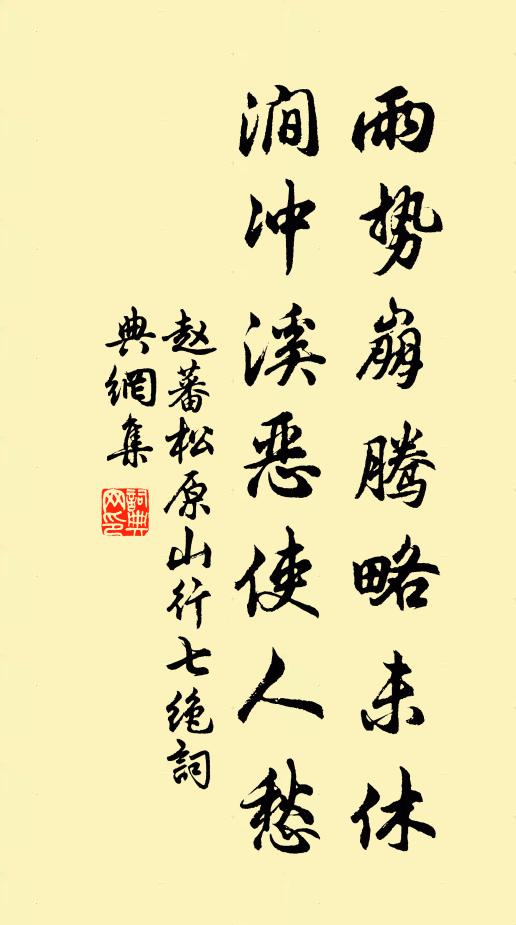 雨势崩腾略未休
涧冲溪恶使人愁
赵蕃松原山行七绝詞
典網集
詞典
网印